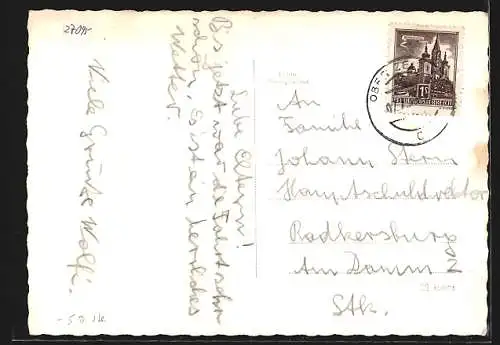 Liebe Eltern!
Bis jetzt war die Fahrt sehr
schön, es ist ein herrliches
Wetter.
Viele Grüsse Wolfi.
An
Familie
Johann Stern
Hauptschuldirektor
Radkersburg
Am Damm 2
Stk.
1S
REPUBLIK ÖSTERREICH